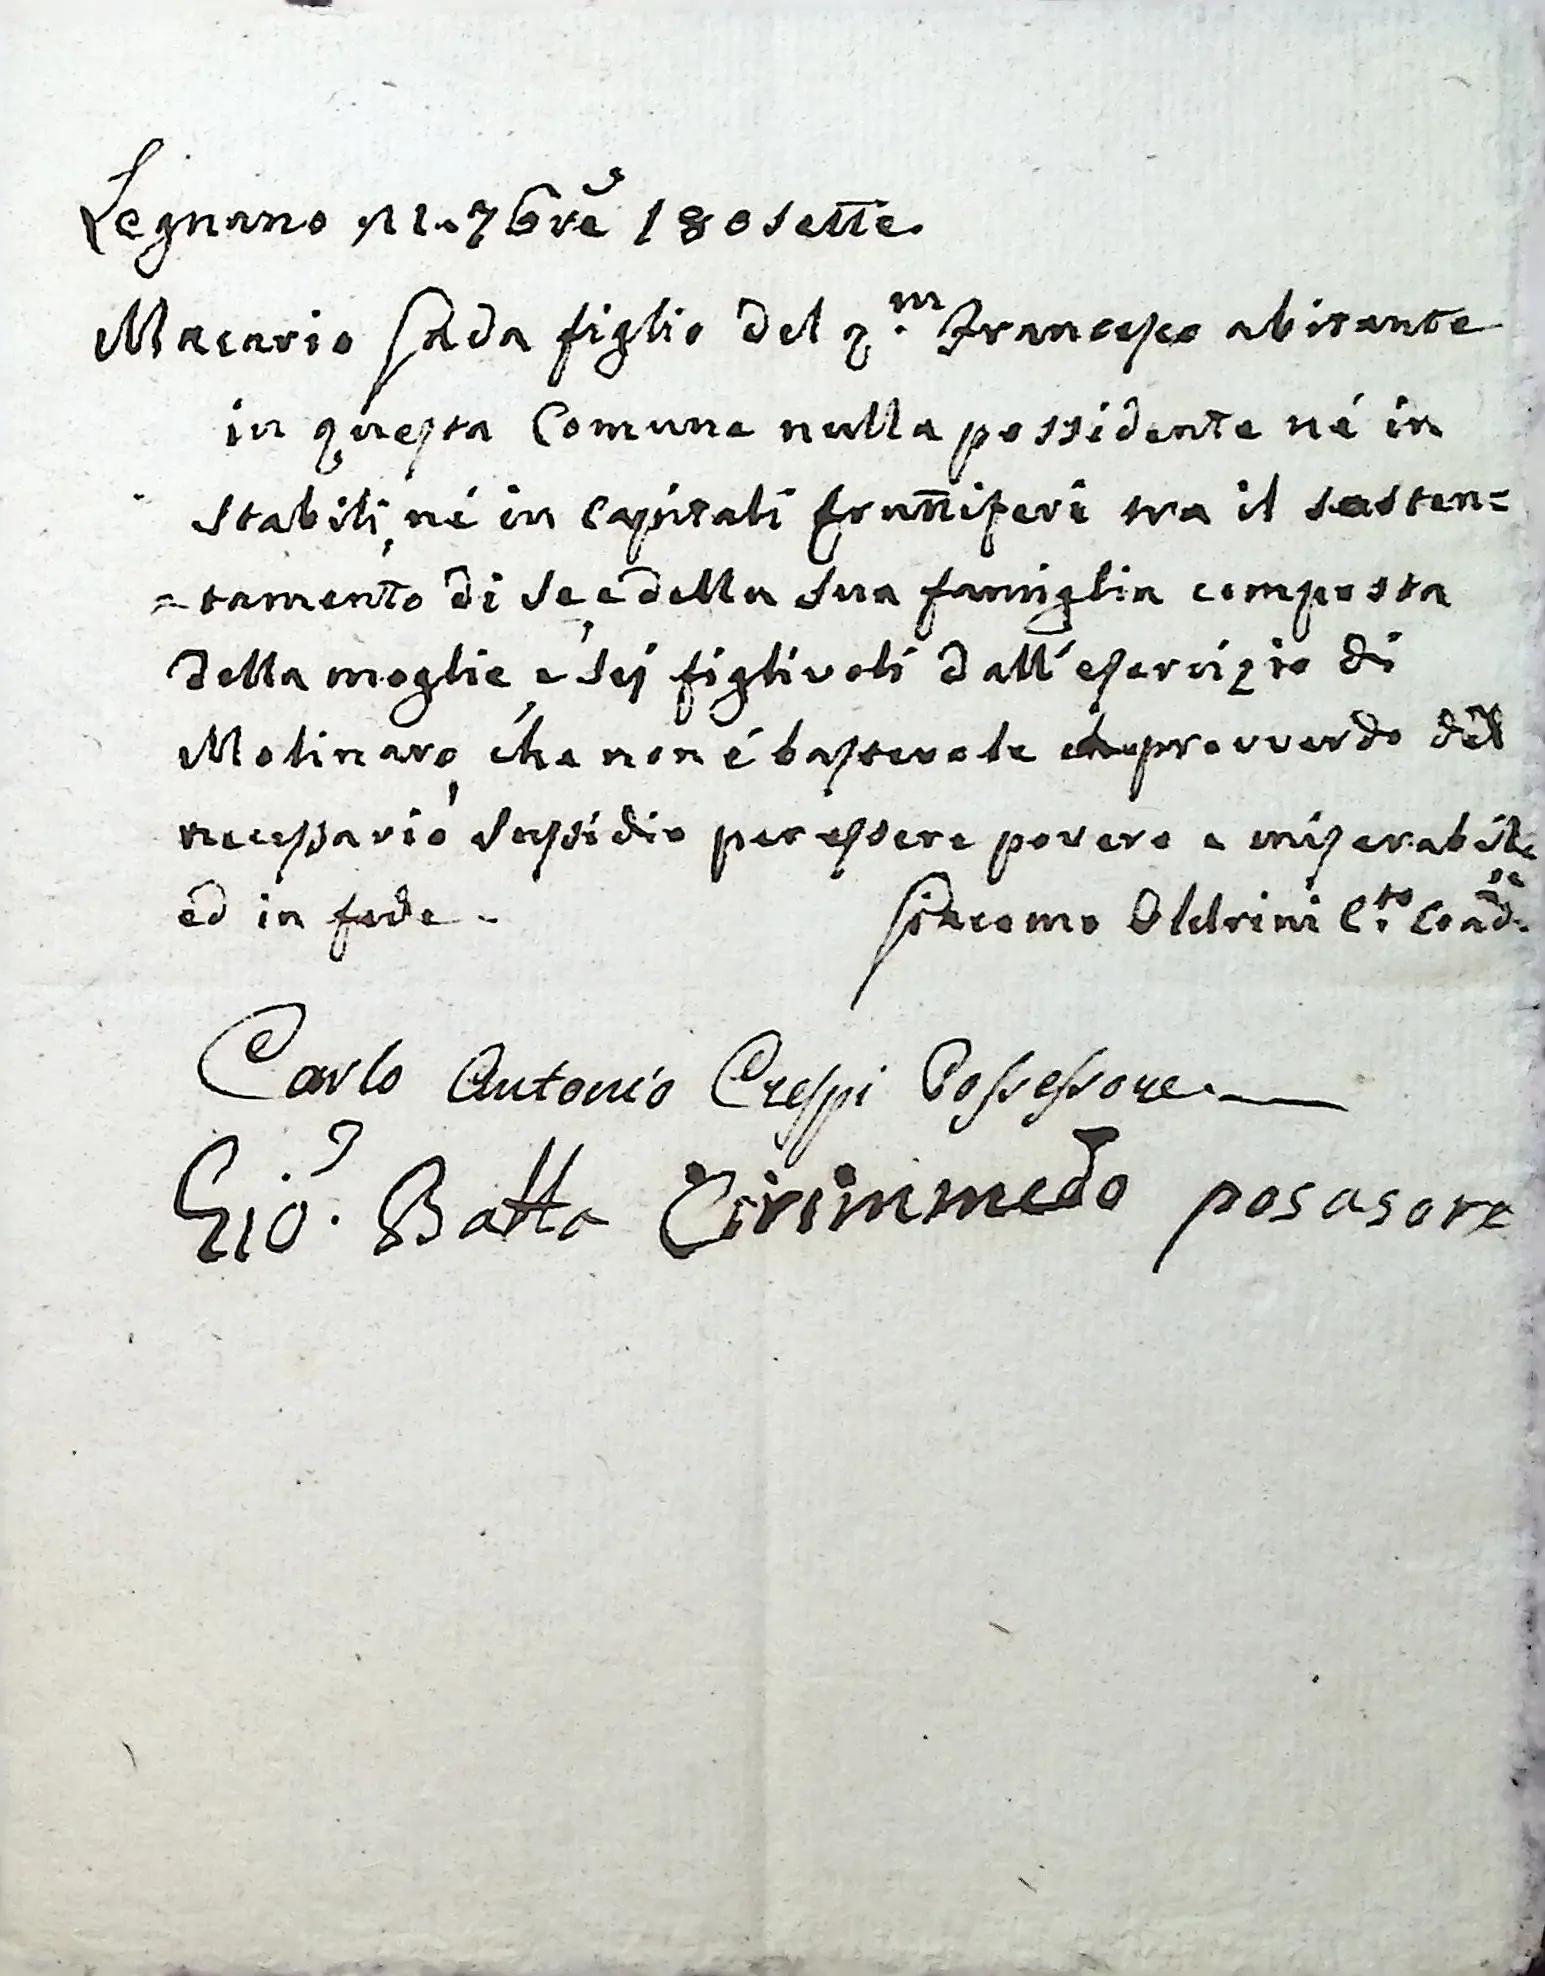 Legnano 11. 7bre 180sette.
Macario Sada figlio del q.m Francesco abitante
in questa Comune nulla possidente né in
stabili, né in capitali fruttiferi tra il sosten=
=tamento di se, e della sua famiglia composta
della moglie, e sei figlivoli dall'esercizio di
Molinaro, che non é bastevole
necessario sussidio per essere povero e miserabile
ed in fede. Giacomo Oldrini C.to Coad.re
Carlo Antonio Crespi Possessore.
Gio. Batta posasore